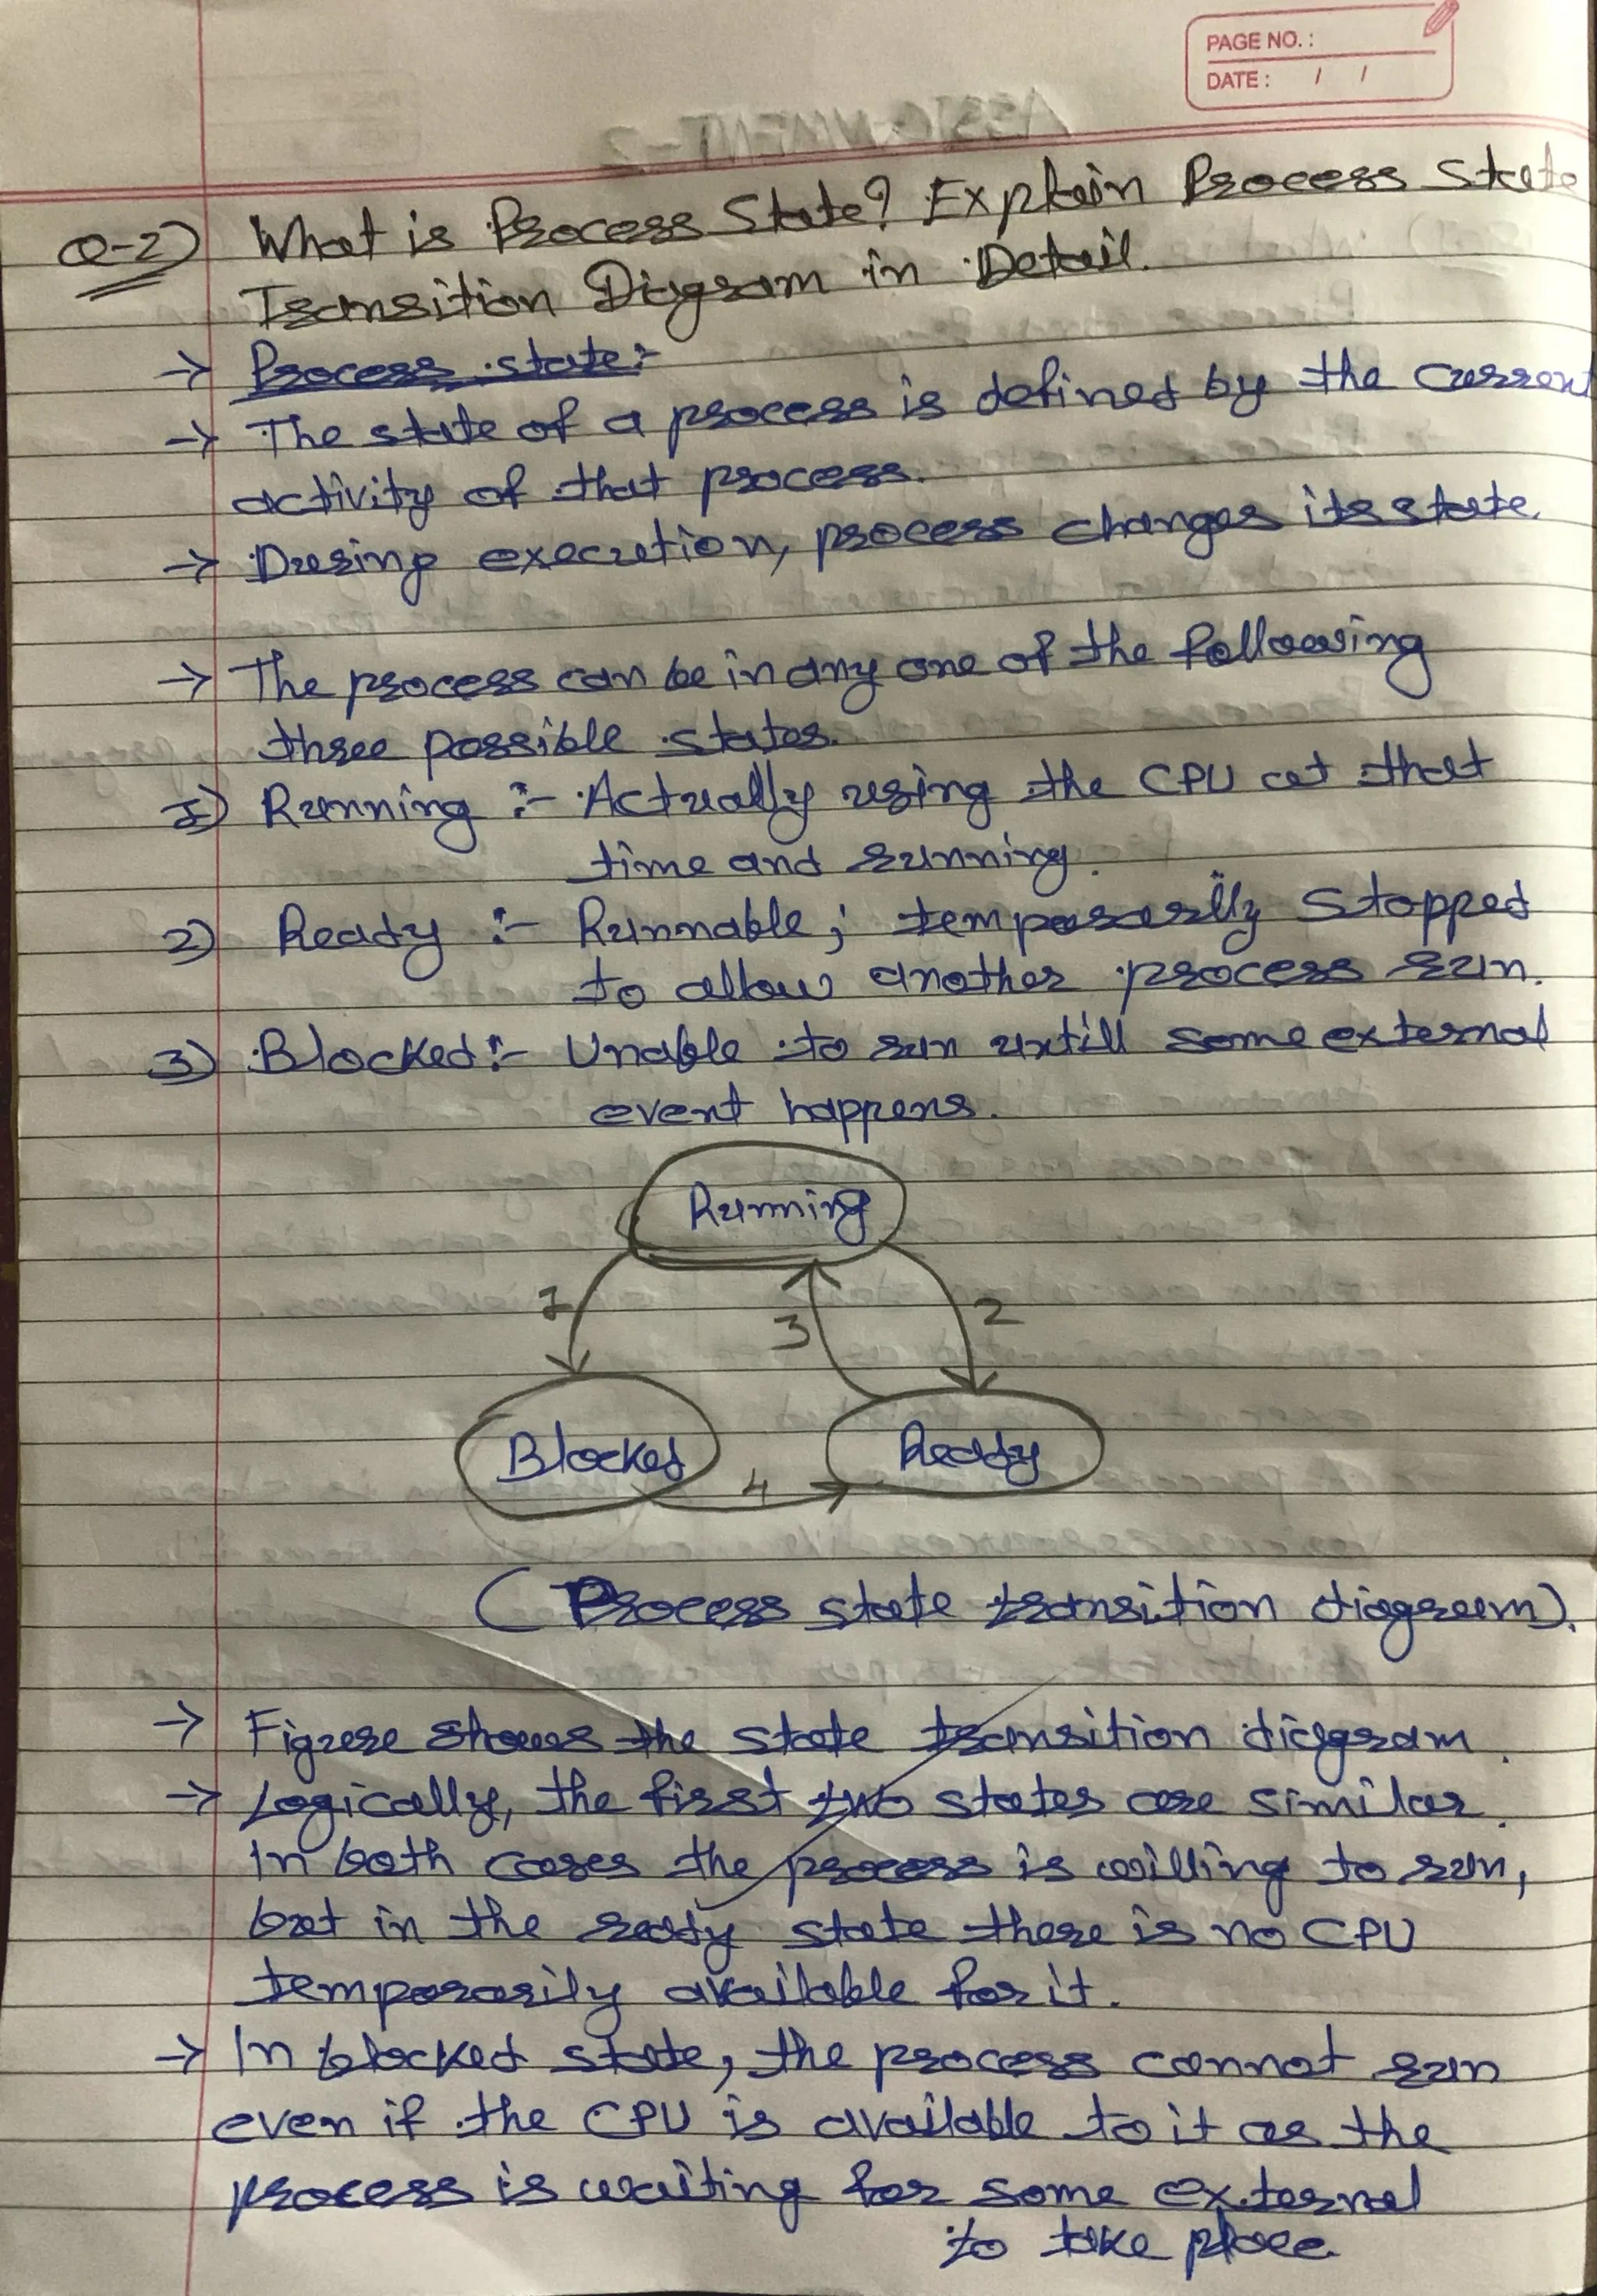 PAGE NO.:
DATE: / /
Q-2) What is Process State? Explain Process State
Transition Diagram in Detail.
→ Process state:-
→ The state of a process is defined by the current
activity of that process.
→ During execution, process changes its state.
→ The process can be in any one of the following
three possible states.
1) Running :- Actually using the CPU at that
time and running.
2) Ready :- Runnable; temporarily stopped
to allow another process run.
3) Blocked:- Unable to run untill some external
event happens.
Running
1
3
2
Blocked
4
Ready
(Process state transition diagram).
→ Figure shows the state transition diagram.
→ Logically, the first two states are similar.
In both cases the process is willing to run,
but in the ready state there is no CPU
temporarily available for it.
→ In blocked state, the process cannot run
even if the CPU is available to it as the
process is waiting for some external
to take place.